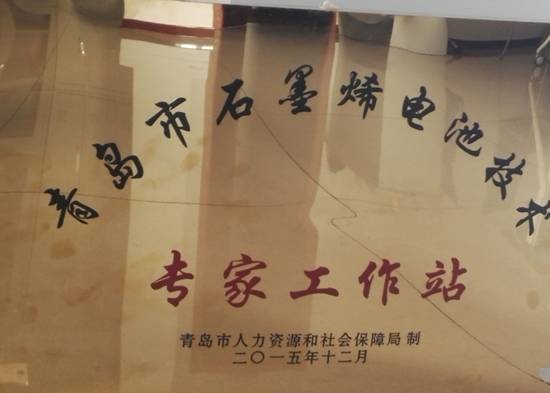 青岛市石墨烯电池技术
专家工作站
青岛市人力资源和社会保障局 制
二〇一五年十二月